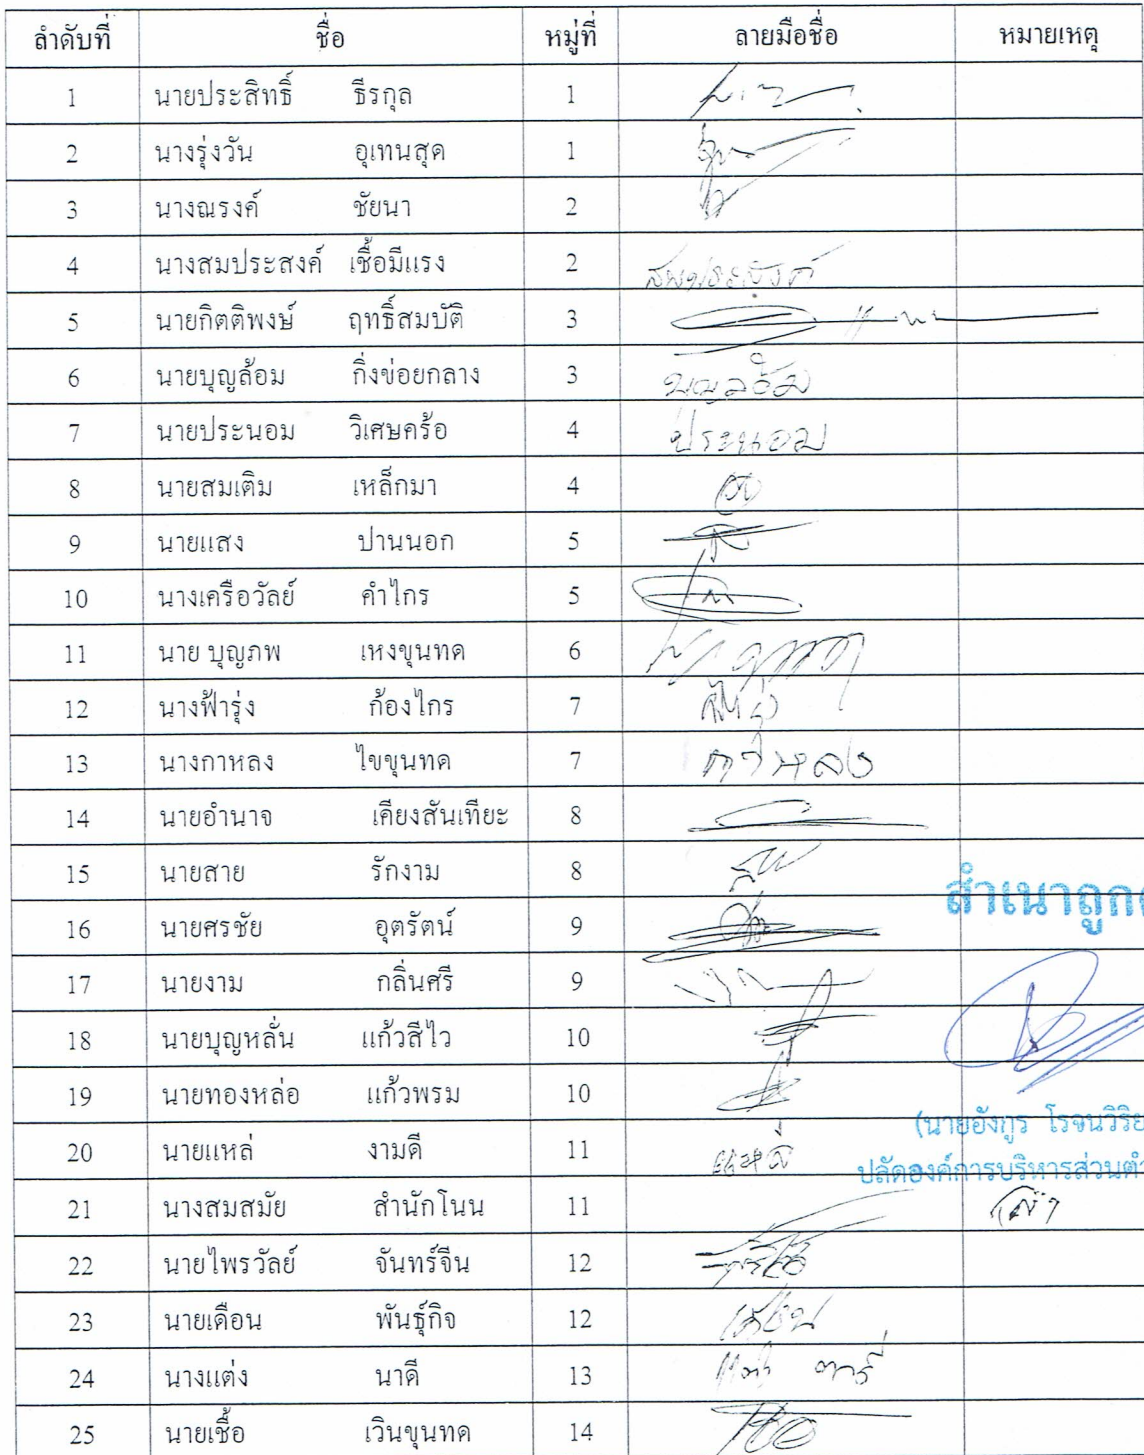 ลำดับที่ ชื่อ หมู่ที่ ลายมือชื่อ หมายเหตุ
1 นายประสิทธิ์ ธีรกุล 1
2 นางรุ่งวัน อุเทนสุด 1
3 นางณรงค์ ชัยนา 2
4 นางสมประสงค์ เชื้อมีแรง 2 สมประสงค์
5 นายกิตติพงษ์ ฤทธิ์สมบัติ 3
6 นายบุญล้อม กิ่งข่อยกลาง 3 บุญล้อม
7 นายประนอม วิเศษคร้อ 4 ประนอม
8 นายสมเติม เหล็กมา 4
9 นายแสง ปานนอก 5
10 นางเครือวัลย์ คำไกร 5
11 นาย บุญภพ เหงขุนทด 6
12 นางฟ้ารุ่ง ก้องไกร 7
13 นางกาหลง ไขขุนทด 7 กาหลง
14 นายอำนาจ เคียงสันเทียะ 8
15 นายสาย รักงาม 8
สำเนาถูกต
16 นายศรชัย อุตรัตน์ 9
17 นายงาม กลิ่นศรี 9
18 นายบุญหลั่น แก้วสีไว 10
19 นายทองหล่อ แก้วพรม 10
(นายอังกูร โรจนวิริย
20 นายแหล่ งามดี 11 แหล่
ปลัดองค์การบริหารส่วนตำ
21 นางสมสมัย สำนักโนน 11
22 นายไพรวัลย์ จันทร์จีน 12
23 นายเดือน พันธุ์กิจ 12 เดือน
24 นางแต่ง นาดี 13
25 นายเชื้อ เวินขุนทด 14